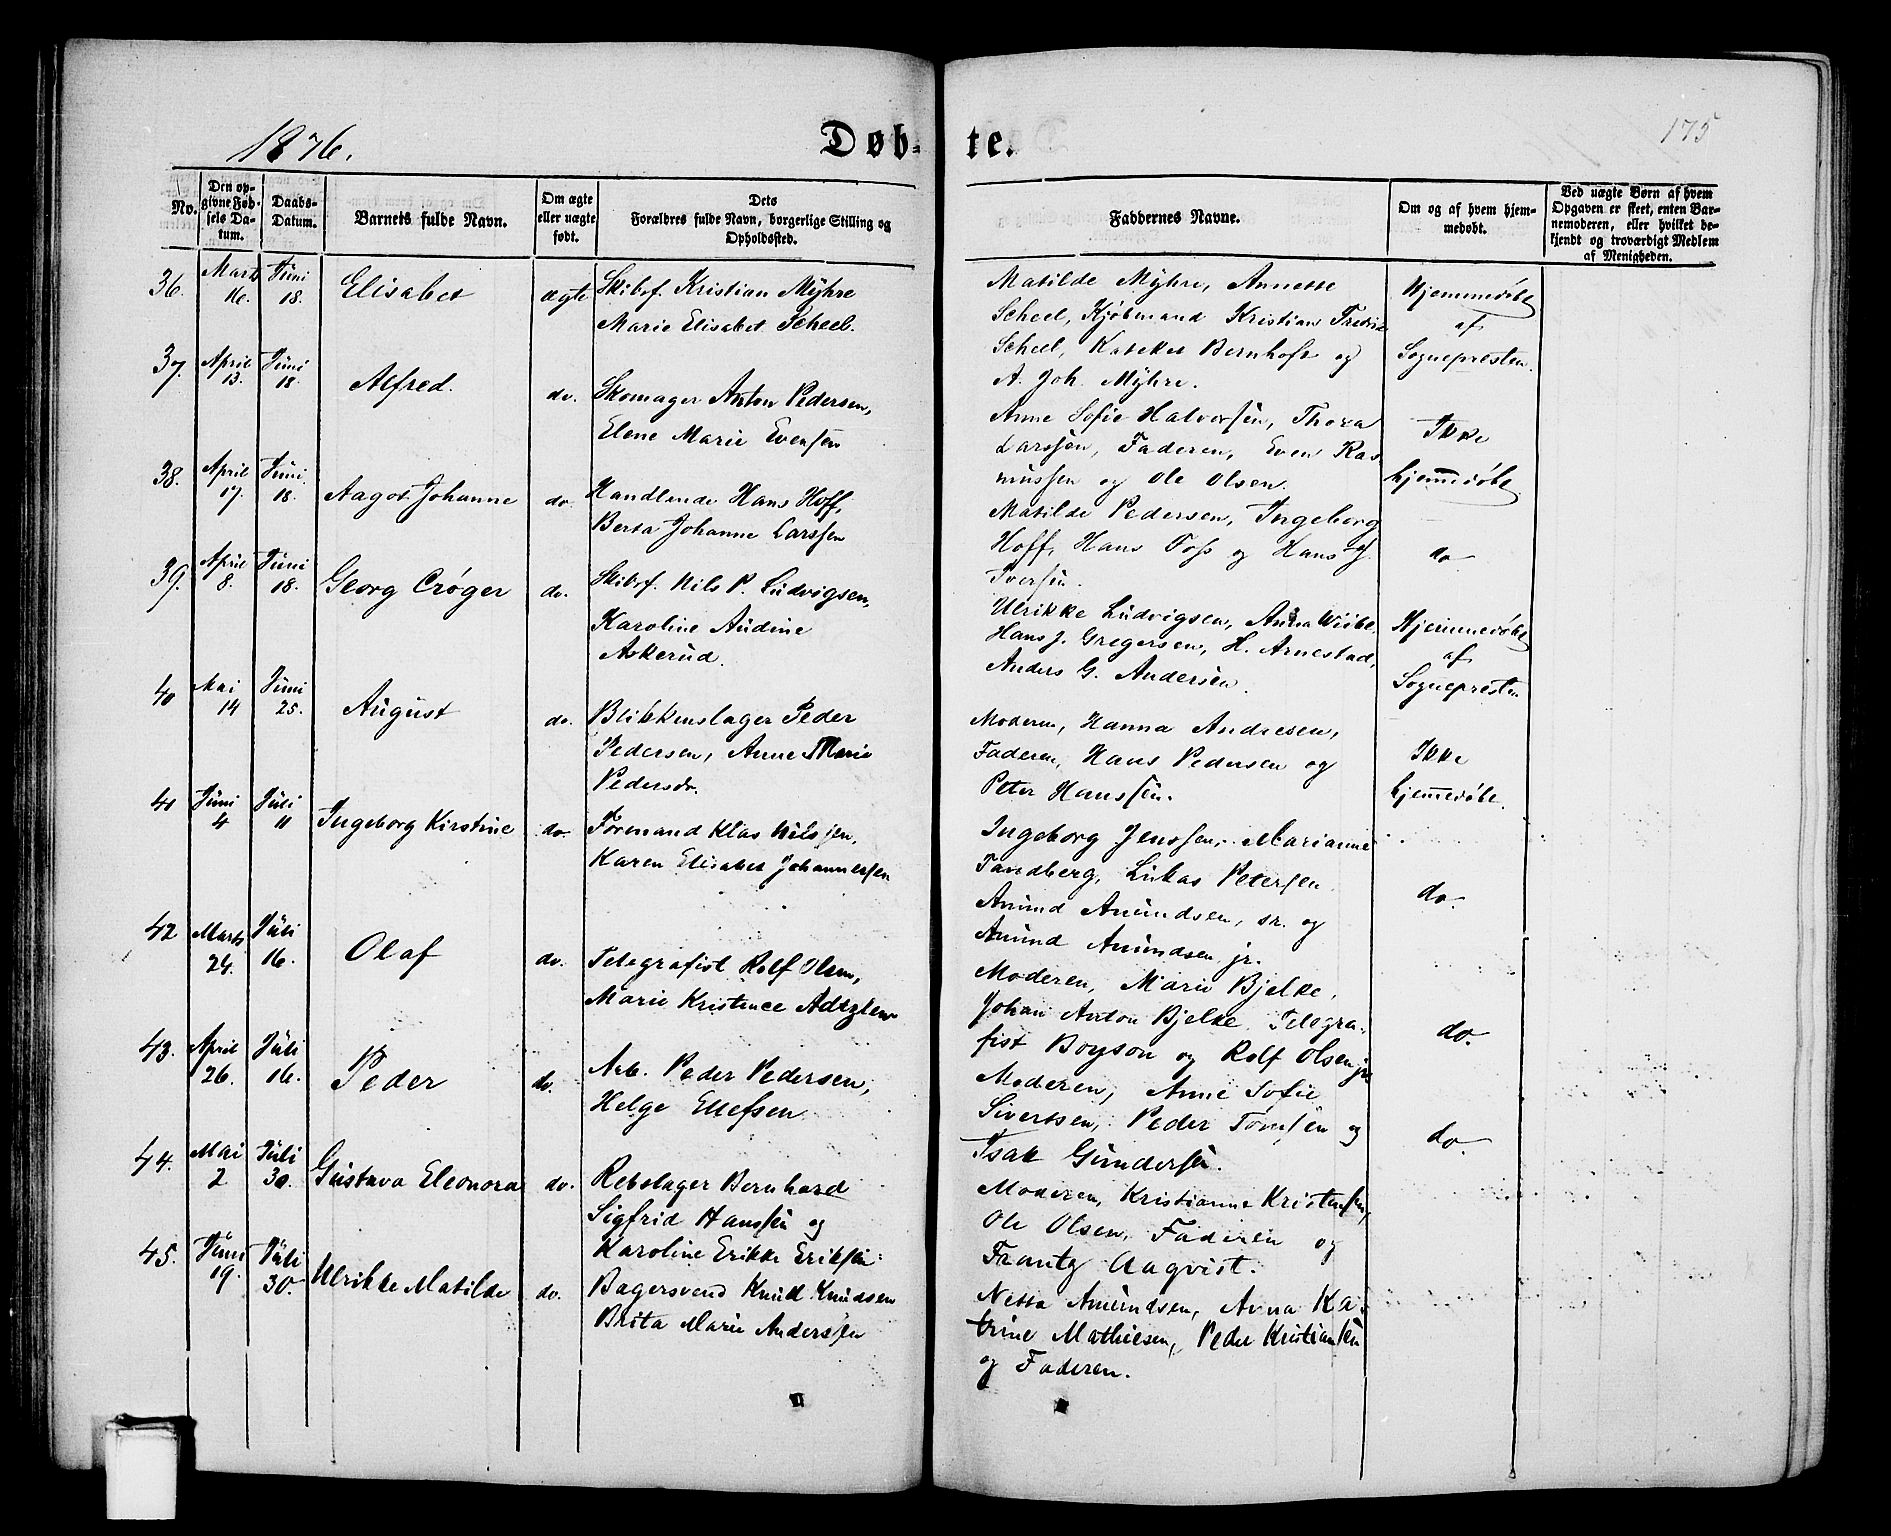 1876.
Døb-
te.
175
No.
Den op-
givne Fød-
sels Da-
tum.
Daabs-
Datum.
Barnets fulde Navn.
Om ægte
eller uægte
født.
Dets
Forældres fulde Navn, borgerlige Stilling og
Opholdssted.
Faddernes Navne.
Om og af hvem hjem-
medøbt.
Ved uægte Børn af hvem
Opgaven er skeet, enten Bar-
nemoderen, eller hvilket be-
kjendt og troværdigt Medlem
af Menigheden.
36.
Marts
16.
Juni
18.
Elisabet
ægte
Skibsf. Kristian Myhre
Marie Elisabet Scheel.
Matilde Myhre, Annette
Scheel, Kjøbmand Kristian Fredrik
Scheel, Kateket Bernhoft og
A. Joh. Myhre.
Hjemmedøbt
af
Sognepresten.
37.
April
13.
Juni
18.
Alfred.
do.
Skomager Anton Pedersen,
Elene Marie Evensen
Anne Sofie Halvorsen, Thora
Larssen, Faderen, Even Ras-
mussen og Ole Olsen.
Ikke
hjemmedøbt
38.
April
17.
Juni
18.
Aagot Johanne
do.
Handlende Hans Hoff,
Berta Johanne Larssen
Matilde Pedersen, Ingeborg
Hoff, Hans Foss og Hans J.
Iversen.
do
39.
April
8.
Juni
18.
Georg Crøger
do.
Skibsf. Nils P. Ludvigsen,
Karoline Audine
Askerud.
Ulrikke Ludvigsen, Anna Wiibe,
Hans J. Gregersen, H. Arnestad,
Anders G. Andersen.
Hjemmedøbt
af
Sognepresten
40
Mai
14
Juni
25.
August
do.
Blikkenslager Peder
Pedersen, Anne Marie
Pedersdr.
Moderen, Hanna Andresen,
Faderen, Hans Pedersen og
Peter Hanssen.
Ikke
hjemmedøbt.
41
Juni
4
Juli
11
Ingeborg Kirstine
do.
Formand Klas Nilsen,
Karen Elisabet Johannessen
Ingeborg Jenssen, Marianne
Tandberg, Lukas Petersen
Amund Amundsen, sr. og
Amund Amundsen jr.
do.
42
Marts
24.
Juli
16.
Olaf
do.
Telegrafist Rolf Olsen,
Marie Kristence
Moderen, Marie Bjelke,
Johan Anton Bjelke, Telegra-
fist Boyson og Rolf Olsen jr.
do.
43.
April
26.
Juli
16.
Peder
do.
Arb. Peder Pedersen,
Helge Ellefsen
Moderen, Anne Sofie
Sivertsen, Peder Tomesen og
Isak Gundersen.
do.
44.
Mai
2
Juli
30.
Gustava Eleonora
do.
Rebslager Bernhard
Sigfrid Hanssen og
Karoline Erikke Eriksen.
Moderen, Kristianne Kristensen,
Ole Olsen, Faderen og
Frantz Aaqvist.
45.
Juni
19.
Juli
30.
Ulrikke Matilde
do.
Bagersvend Knud Knudsen
Brita Marie Anderssen
Netta Amundsen, Anna Ka-
trine Mathiesen, Peder Kristiansen
og Faderen.